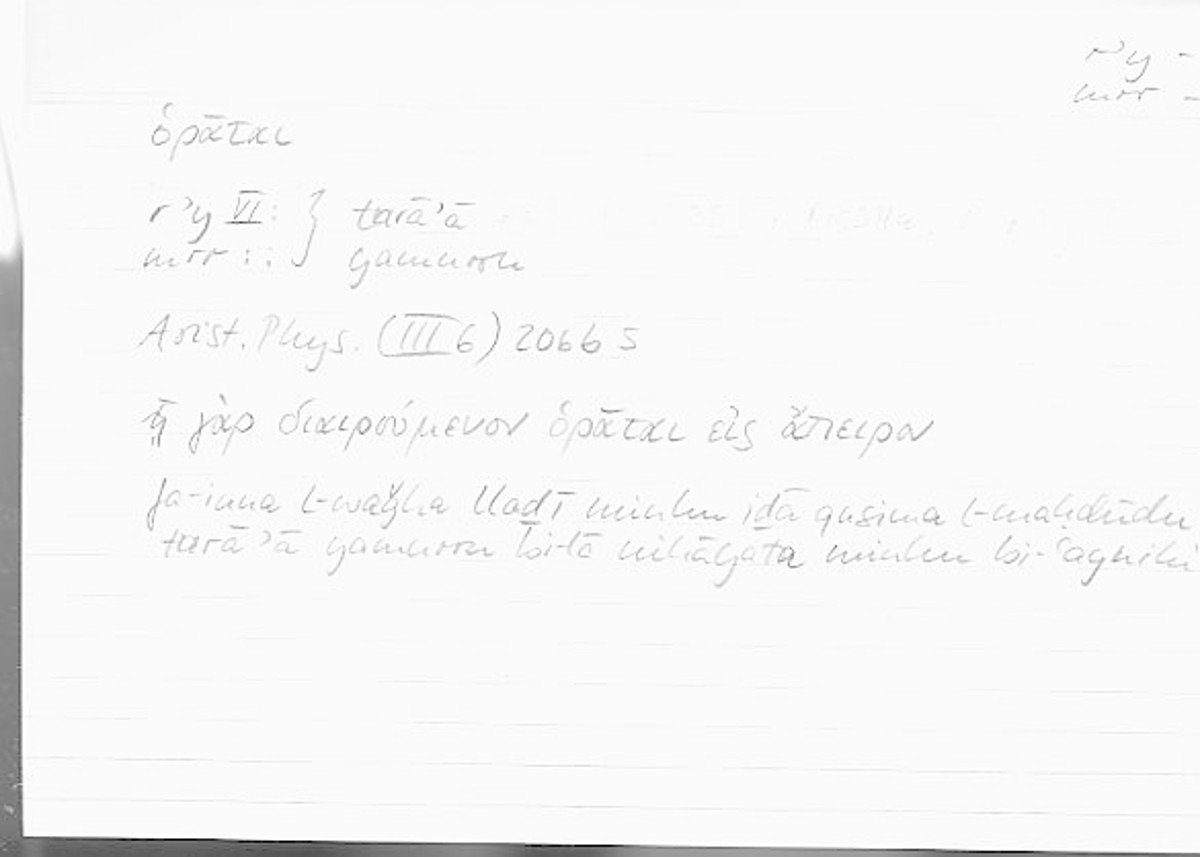 rʾy -
mrr -
ὁρᾶται
rʾy VI : } tarāʾā
mrr : : yamurru
Arist. Phys. (III 6) 206b 5
ᾗ γὰρ διαιρούμενον ὁρᾶται εἰς ἄπειρον
fa-inna l-waǧha lladī minhu idā qusima l-maḥdūdu
tarāʾā yamurru bi-lā nihāyata minhu bi-ʿaynihi